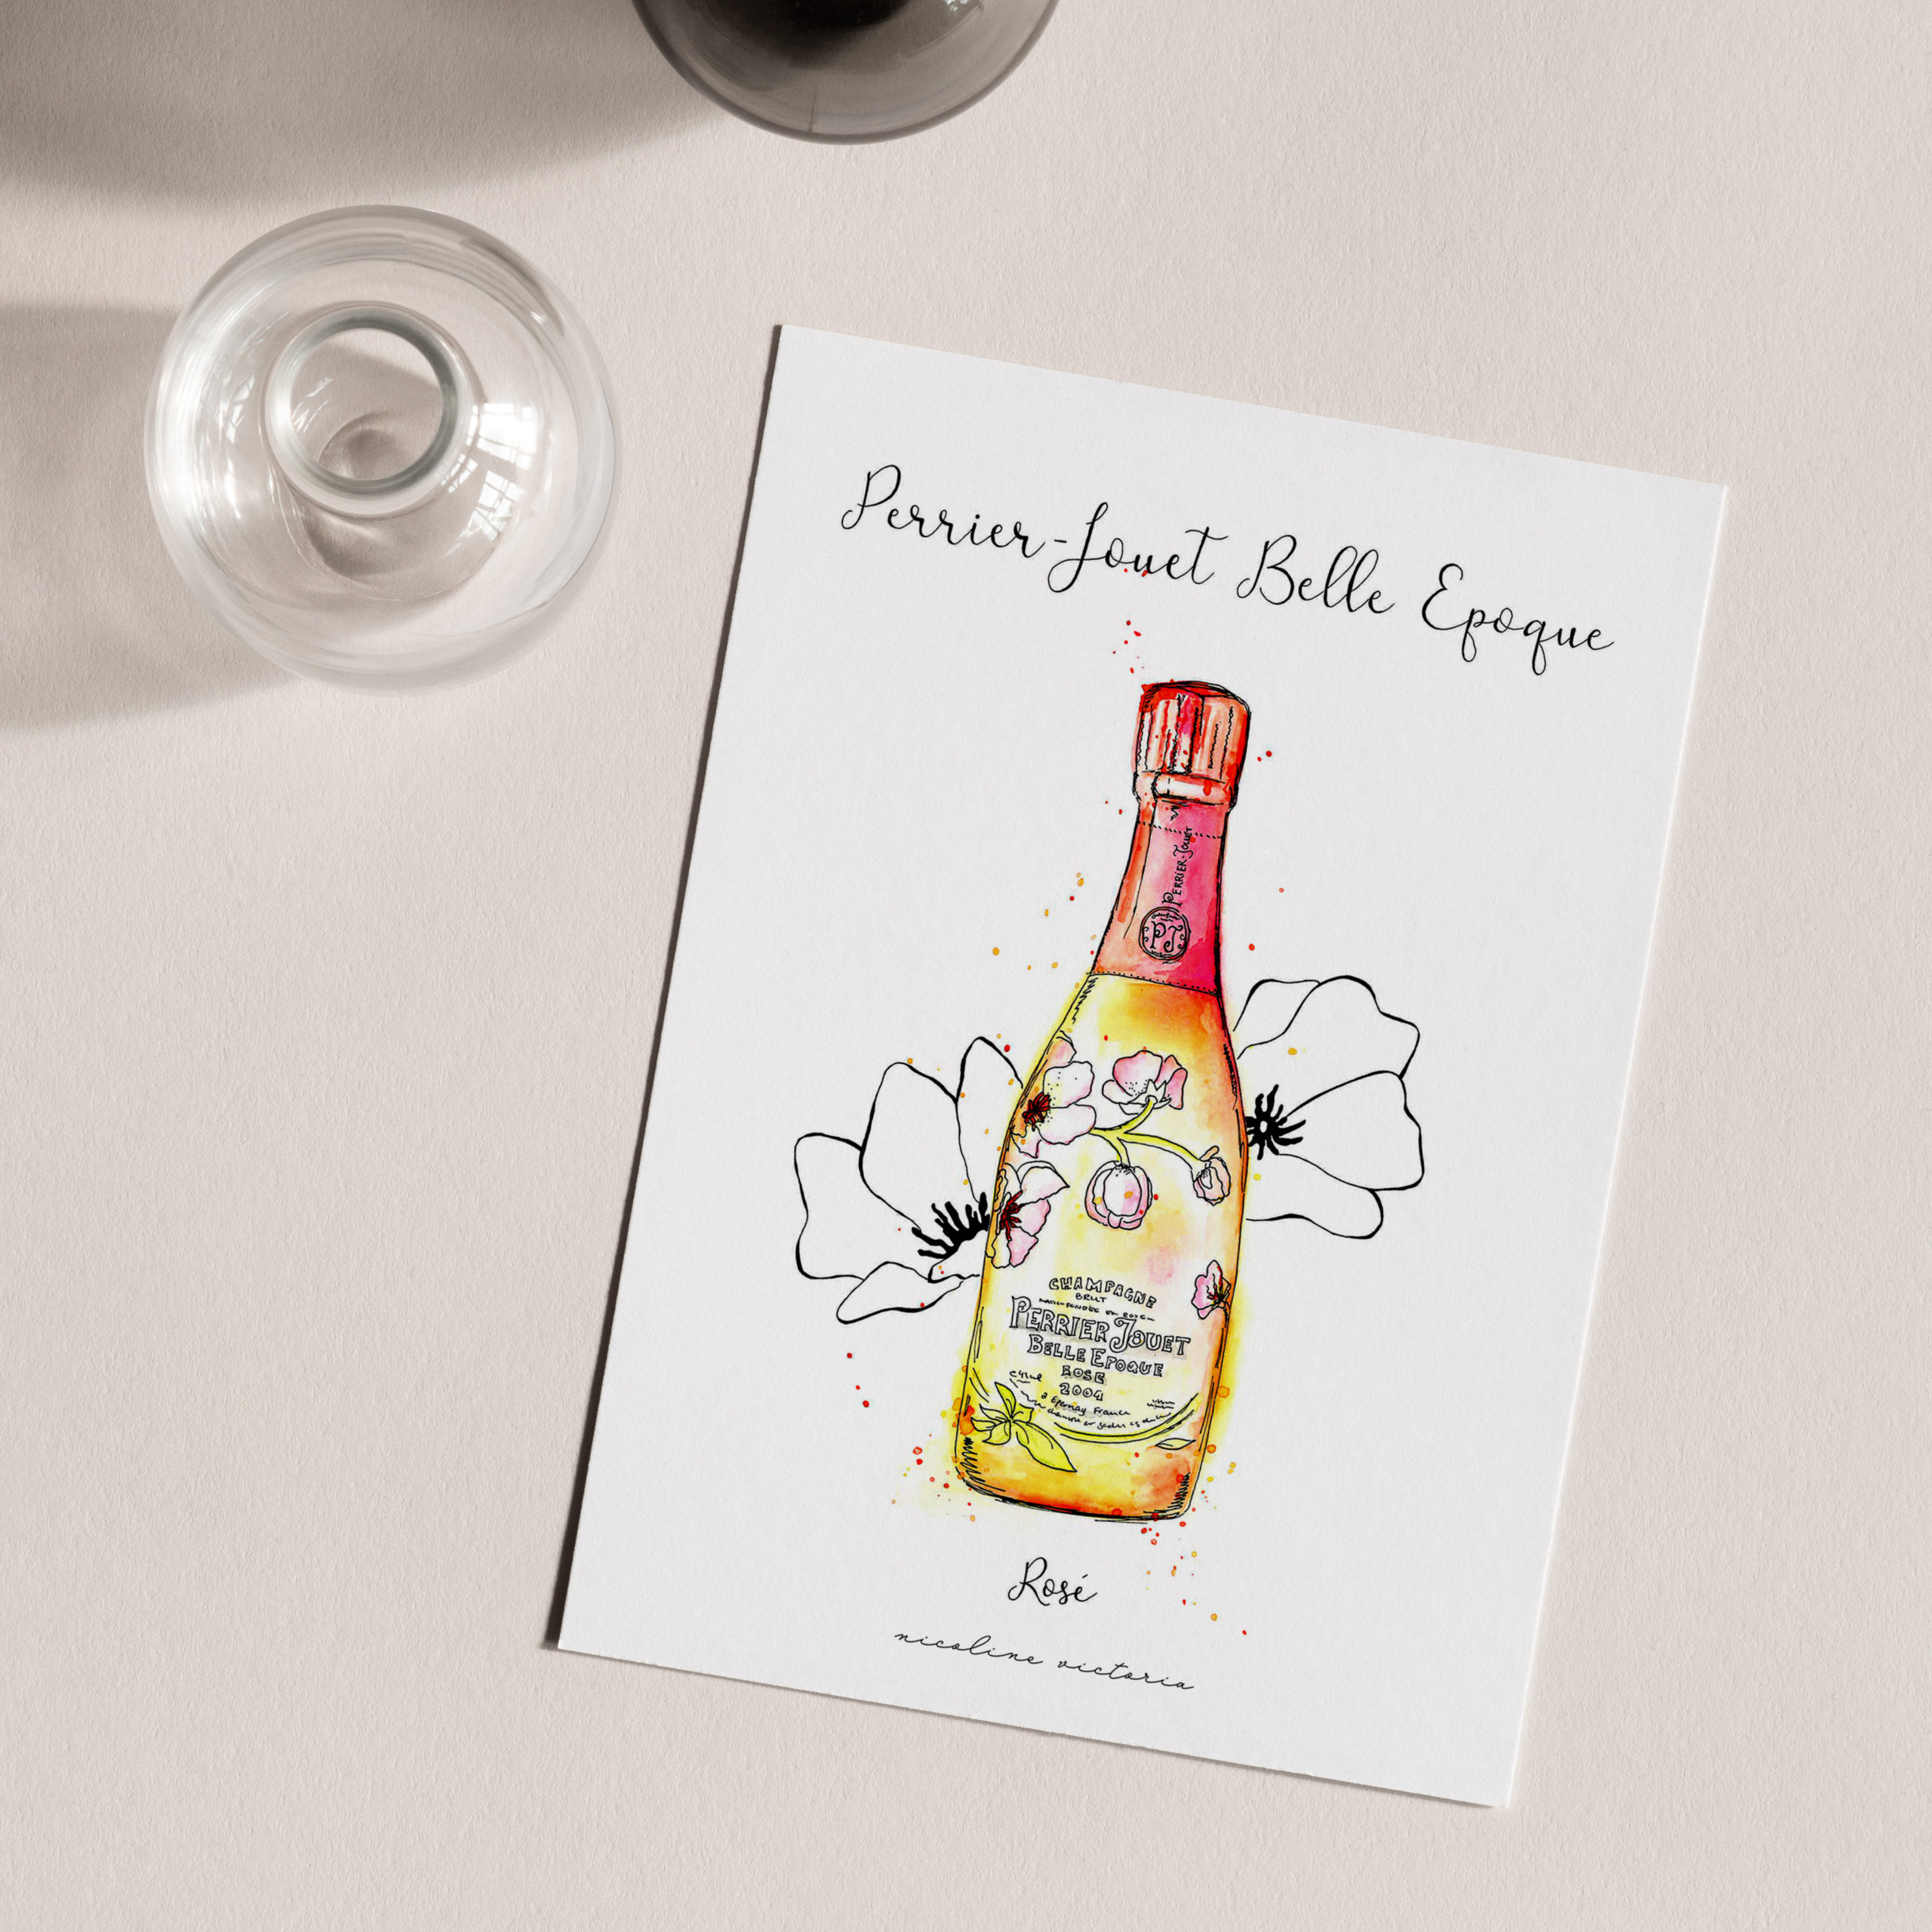 Perrier-Jouet Belle Epoque
PERRIER-JOUET
PJ
CHAMPAGNE
BRUT
PERRIER JOUET
BELLE EPOQUE
ROSE
2004
a Epernay France
Rosé
nicoline victoria